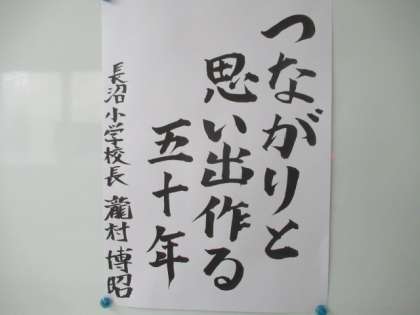 つながりと
思い出作る
五十年
長沼小学校長 龍村博昭